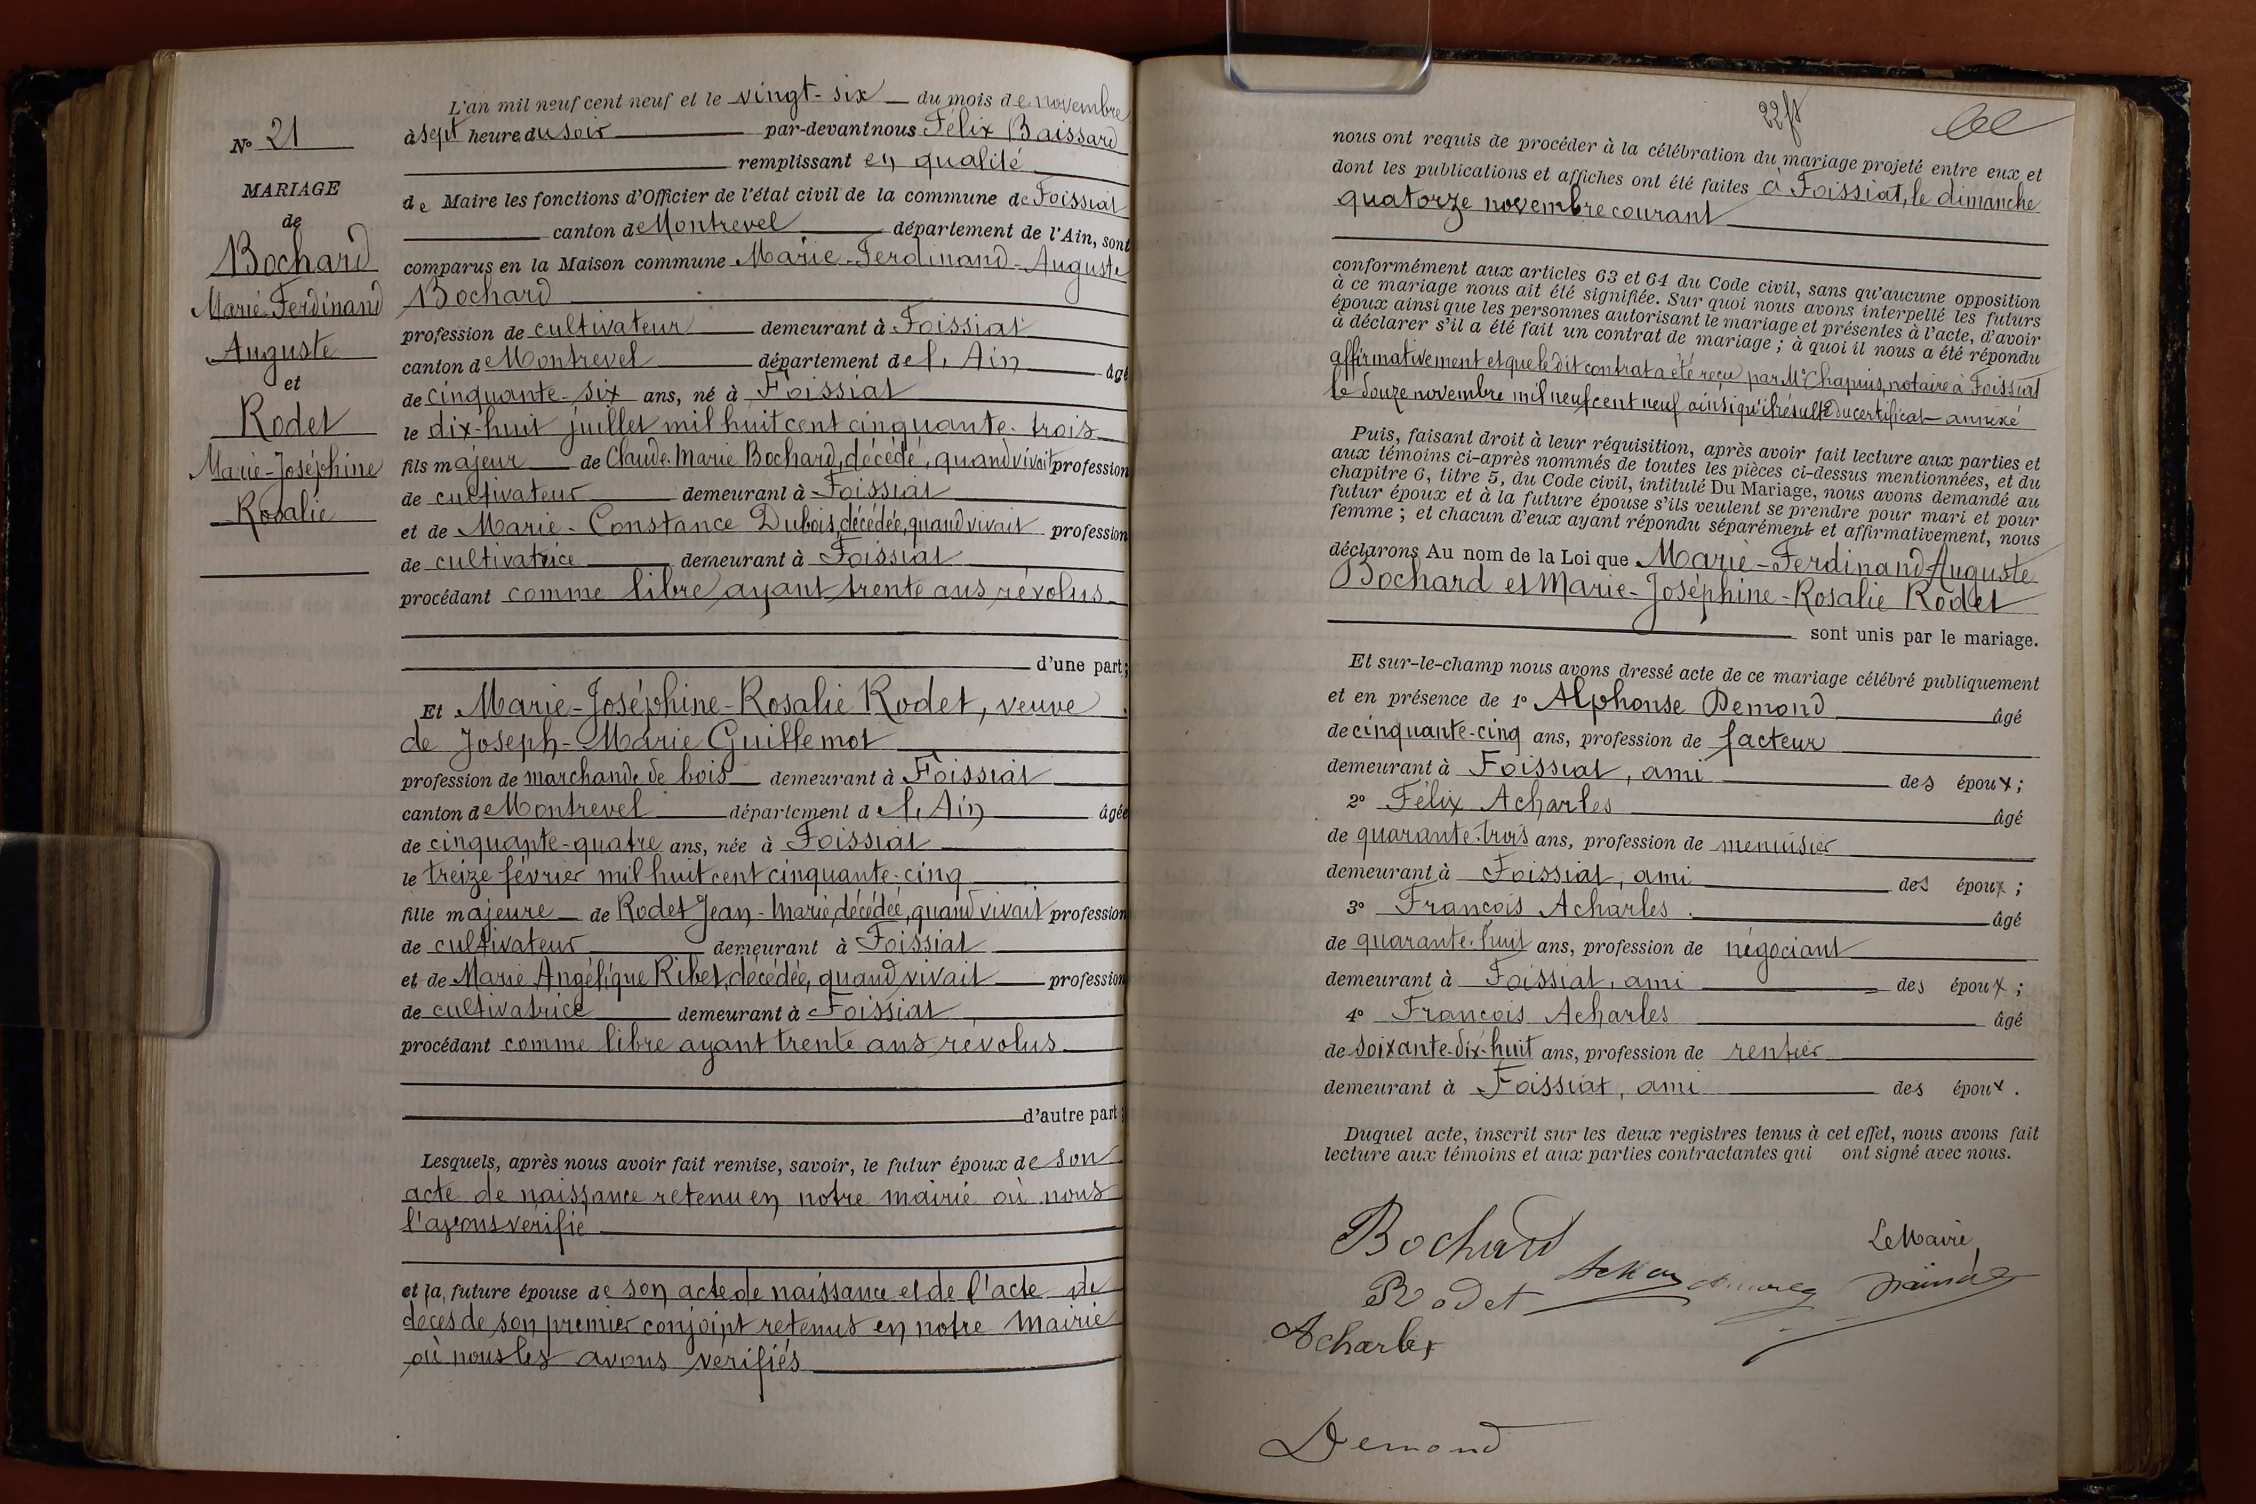 L'an mil neuf cent neuf et le vingt-six du mois de novembre
à sept heure du soir par-devant nous Félix Baissard
remplissant en qualité
de Maire les fonctions d'Officier de l'état civil de la commune de Foissiat
canton de Montrevel département de l'Ain, sont
comparus en la Maison commune Marie-Ferdinand-Auguste
Bochard
profession de cultivateur demeurant à Foissiat
canton de Montrevel département de l'Ain âgé
de cinquante-six ans, né à Foissiat
le dix-huit juillet mil huit cent cinquante-trois
fils majeur de Claude-Marie Bochard, décédé, quand vivait profession
de cultivateur demeurant à Foissiat
et de Marie-Constance Dubois, décédée, quand vivait profession
de cultivatrice demeurant à Foissiat
procédant comme libre ayant trente ans révolus
d'une part;
Et Marie-Joséphine-Rosalie Rodet, veuve
de Joseph-Marie Guillemot
profession de marchande de bois demeurant à Foissiat
canton de Montrevel département de l'Ain âgée
de cinquante-quatre ans, née à Foissiat
le treize février mil huit cent cinquante-cinq
fille majeure de Rodet Jean-Marie, décédée, quand vivait profession
de cultivateur demeurant à Foissiat
et de Marie Angélique Ribet, décédée, quand vivait profession
de cultivatrice demeurant à Foissiat
procédant comme libre ayant trente ans révolus
d'autre part;
Lesquels, après nous avoir fait remise, savoir, le futur époux de son
acte de naissance retenu en notre mairie où nous
l'avons vérifié
et la future épouse de son acte de naissance et de l'acte de
décès de son premier conjoint retenus en notre mairie
où nous les avons vérifiés
N° 21
MARIAGE
de
Bochard
Marie-Ferdinand
Auguste
et
Rodet
Marie-Joséphine
Rosalie
22
nous ont requis de procéder à la célébration du mariage projeté entre eux et
dont les publications et affiches ont été faites à Foissiat, le dimanche
quatorze novembre courant
conformément aux articles 63 et 64 du Code civil, sans qu'aucune opposition
à ce mariage nous ait été signifiée. Sur quoi nous avons interpellé les futurs
époux ainsi que les personnes autorisant le mariage et présentes à l'acte, d'avoir
à déclarer s'il a été fait un contrat de mariage; à quoi il nous a été répondu
affirmativement et que le dit contrat a été reçu par Me Chapuis, notaire à Foissiat
le douze novembre mil neuf cent neuf ainsi qu'il résulte du certificat annexé
Puis, faisant droit à leur réquisition, après avoir fait lecture aux parties et
aux témoins ci-après nommés de toutes les pièces ci-dessus mentionnées, et du
chapitre 6, titre 5, du Code civil, intitulé Du Mariage, nous avons demandé au
futur époux et à la future épouse s'ils veulent se prendre pour mari et pour
femme; et chacun d'eux ayant répondu séparément et affirmativement, nous
déclarons Au nom de la Loi que Marie-Ferdinand-Auguste
Bochard et Marie-Joséphine-Rosalie Rodet
sont unis par le mariage.
Et sur-le-champ nous avons dressé acte de ce mariage célébré publiquement
et en présence de 1° Alphonse Demond âgé
de cinquante-cinq ans, profession de facteur
demeurant à Foissiat, ami des époux;
2° Félix Acharles âgé
de quarante-trois ans, profession de menuisier
demeurant à Foissiat, ami des époux;
3° François Acharles âgé
de quarante-huit ans, profession de négociant
demeurant à Foissiat, ami des époux;
4° François Acharles âgé
de soixante-dix-huit ans, profession de rentier
demeurant à Foissiat, ami des époux.
Duquel acte, inscrit sur les deux registres tenus à cet effet, nous avons fait
lecture aux témoins et aux parties contractantes qui ont signé avec nous.
Bochard
Le Maire,
Rodet
Acharles
Demond